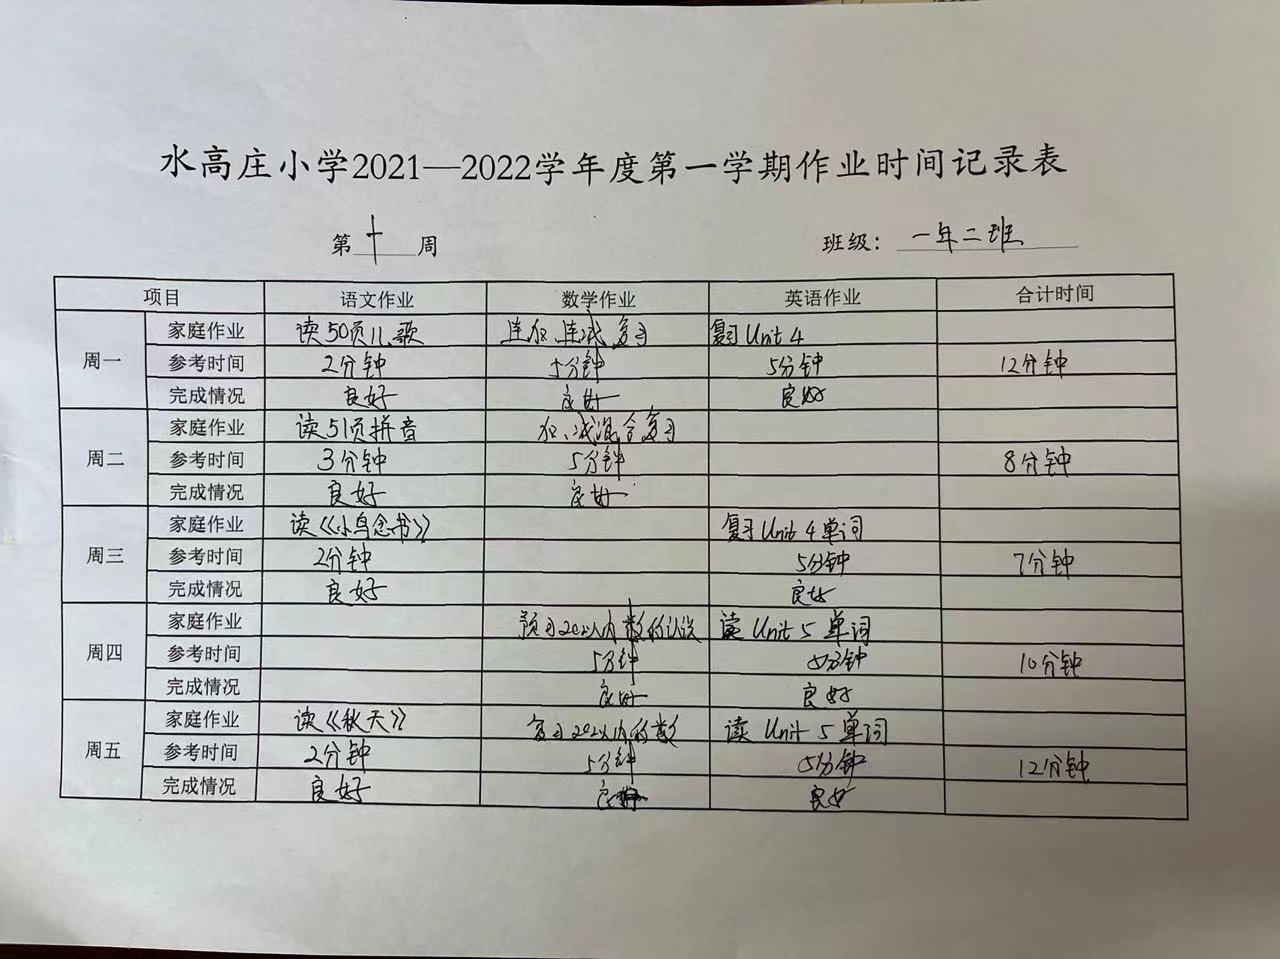 水高庄小学2021—2022学年度第一学期作业时间记录表
第十周 班级：一年二班
项目 语文作业 数学作业 英语作业 合计时间
周一
家庭作业 读50页儿歌 连加、连减复习 复习Unit 4
参考时间 2分钟 5分钟 5分钟 12分钟
完成情况 良好 良好 良好
周二
家庭作业 读51页拼音 加、减混合复习
参考时间 3分钟 5分钟 8分钟
完成情况 良好 良好
周三
家庭作业 读《小鸟念书》 复习Unit 4单词
参考时间 2分钟 5分钟 7分钟
完成情况 良好 良好
周四
家庭作业 预习20以内数的认识 读Unit 5单词
参考时间 5分钟 5分钟 10分钟
完成情况 良好 良好
周五
家庭作业 读《秋天》 复习20以内的数 读Unit 5单词
参考时间 2分钟 5分钟 5分钟 12分钟
完成情况 良好 良好 良好